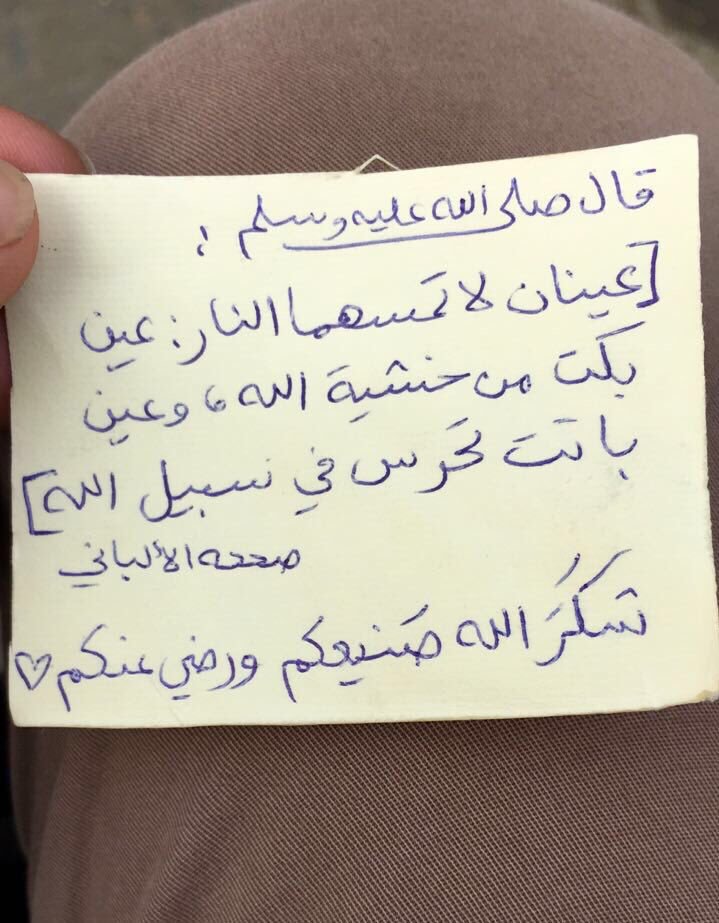 قال صلى الله عليه وسلم :
[عينان لا تمسهما النار: عين
بكت من خشية الله، وعين
باتت تحرس في سبيل الله]
صححه الألباني
شكَرَ الله صَنيعكم ورضي عنكم ♡